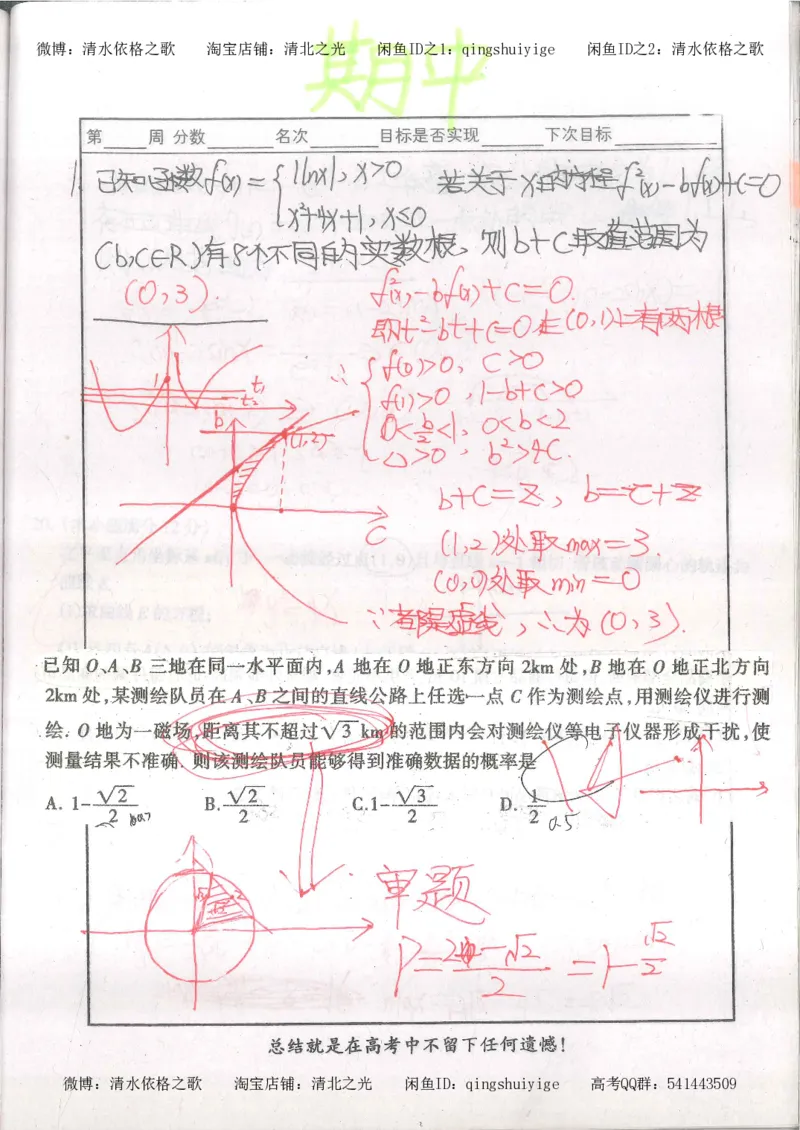 微博：清水依格之歌 淘宝店铺：清北之光 闲鱼ID之1：qingshuiyige 闲鱼ID之2：清水依格之歌
期中
第____周 分数______名次______目标是否实现______下次目标
1. 已知函数f(x)={|lnx|, x>0 若关于x的方程f²(x)-bf(x)+c=0
x²+4x+1, x≤0
(b,c∈R)有8个不同的实数根，则b+c取值范围为
(0,3)
f²(x)-bf(x)+c=0.
即t²-bt+c=0在(0,1)上有两根
∴ {f(0)>0, c>0
f(1)>0, 1-b+c>0
0<b/2<1, 0<b<2
△>0, b²>4c.
1
t₁
t₂
b
(1,2)
c
b+c=z, b=-c+z
(1,2)处取max=3.
(0,0)处取min=0
∵有限虚线, ∴为(0,3).
已知 O、A、B 三地在同一水平面内,A 地在 O 地正东方向 2km 处,B 地在 O 地正北方向
2km 处,某测绘队员在 A、B 之间的直线公路上任选一点 C 作为测绘点,用测绘仪进行测
绘. O 地为一磁场,距离其不超过√3 km 的范围内会对测绘仪等电子仪器形成干扰,使
测量结果不准确. 则该测绘队员能够得到准确数据的概率是
A. 1-√2/2 B. √2/2 C. 1-√3/2 D. 1/2
0.7
0.5
审题
P=2-√2/2=1-√2/2
总结就是在高考中不留下任何遗憾！
微博：清水依格之歌 淘宝店铺：清北之光 闲鱼ID：qingshuiyige 高考QQ群：541443509